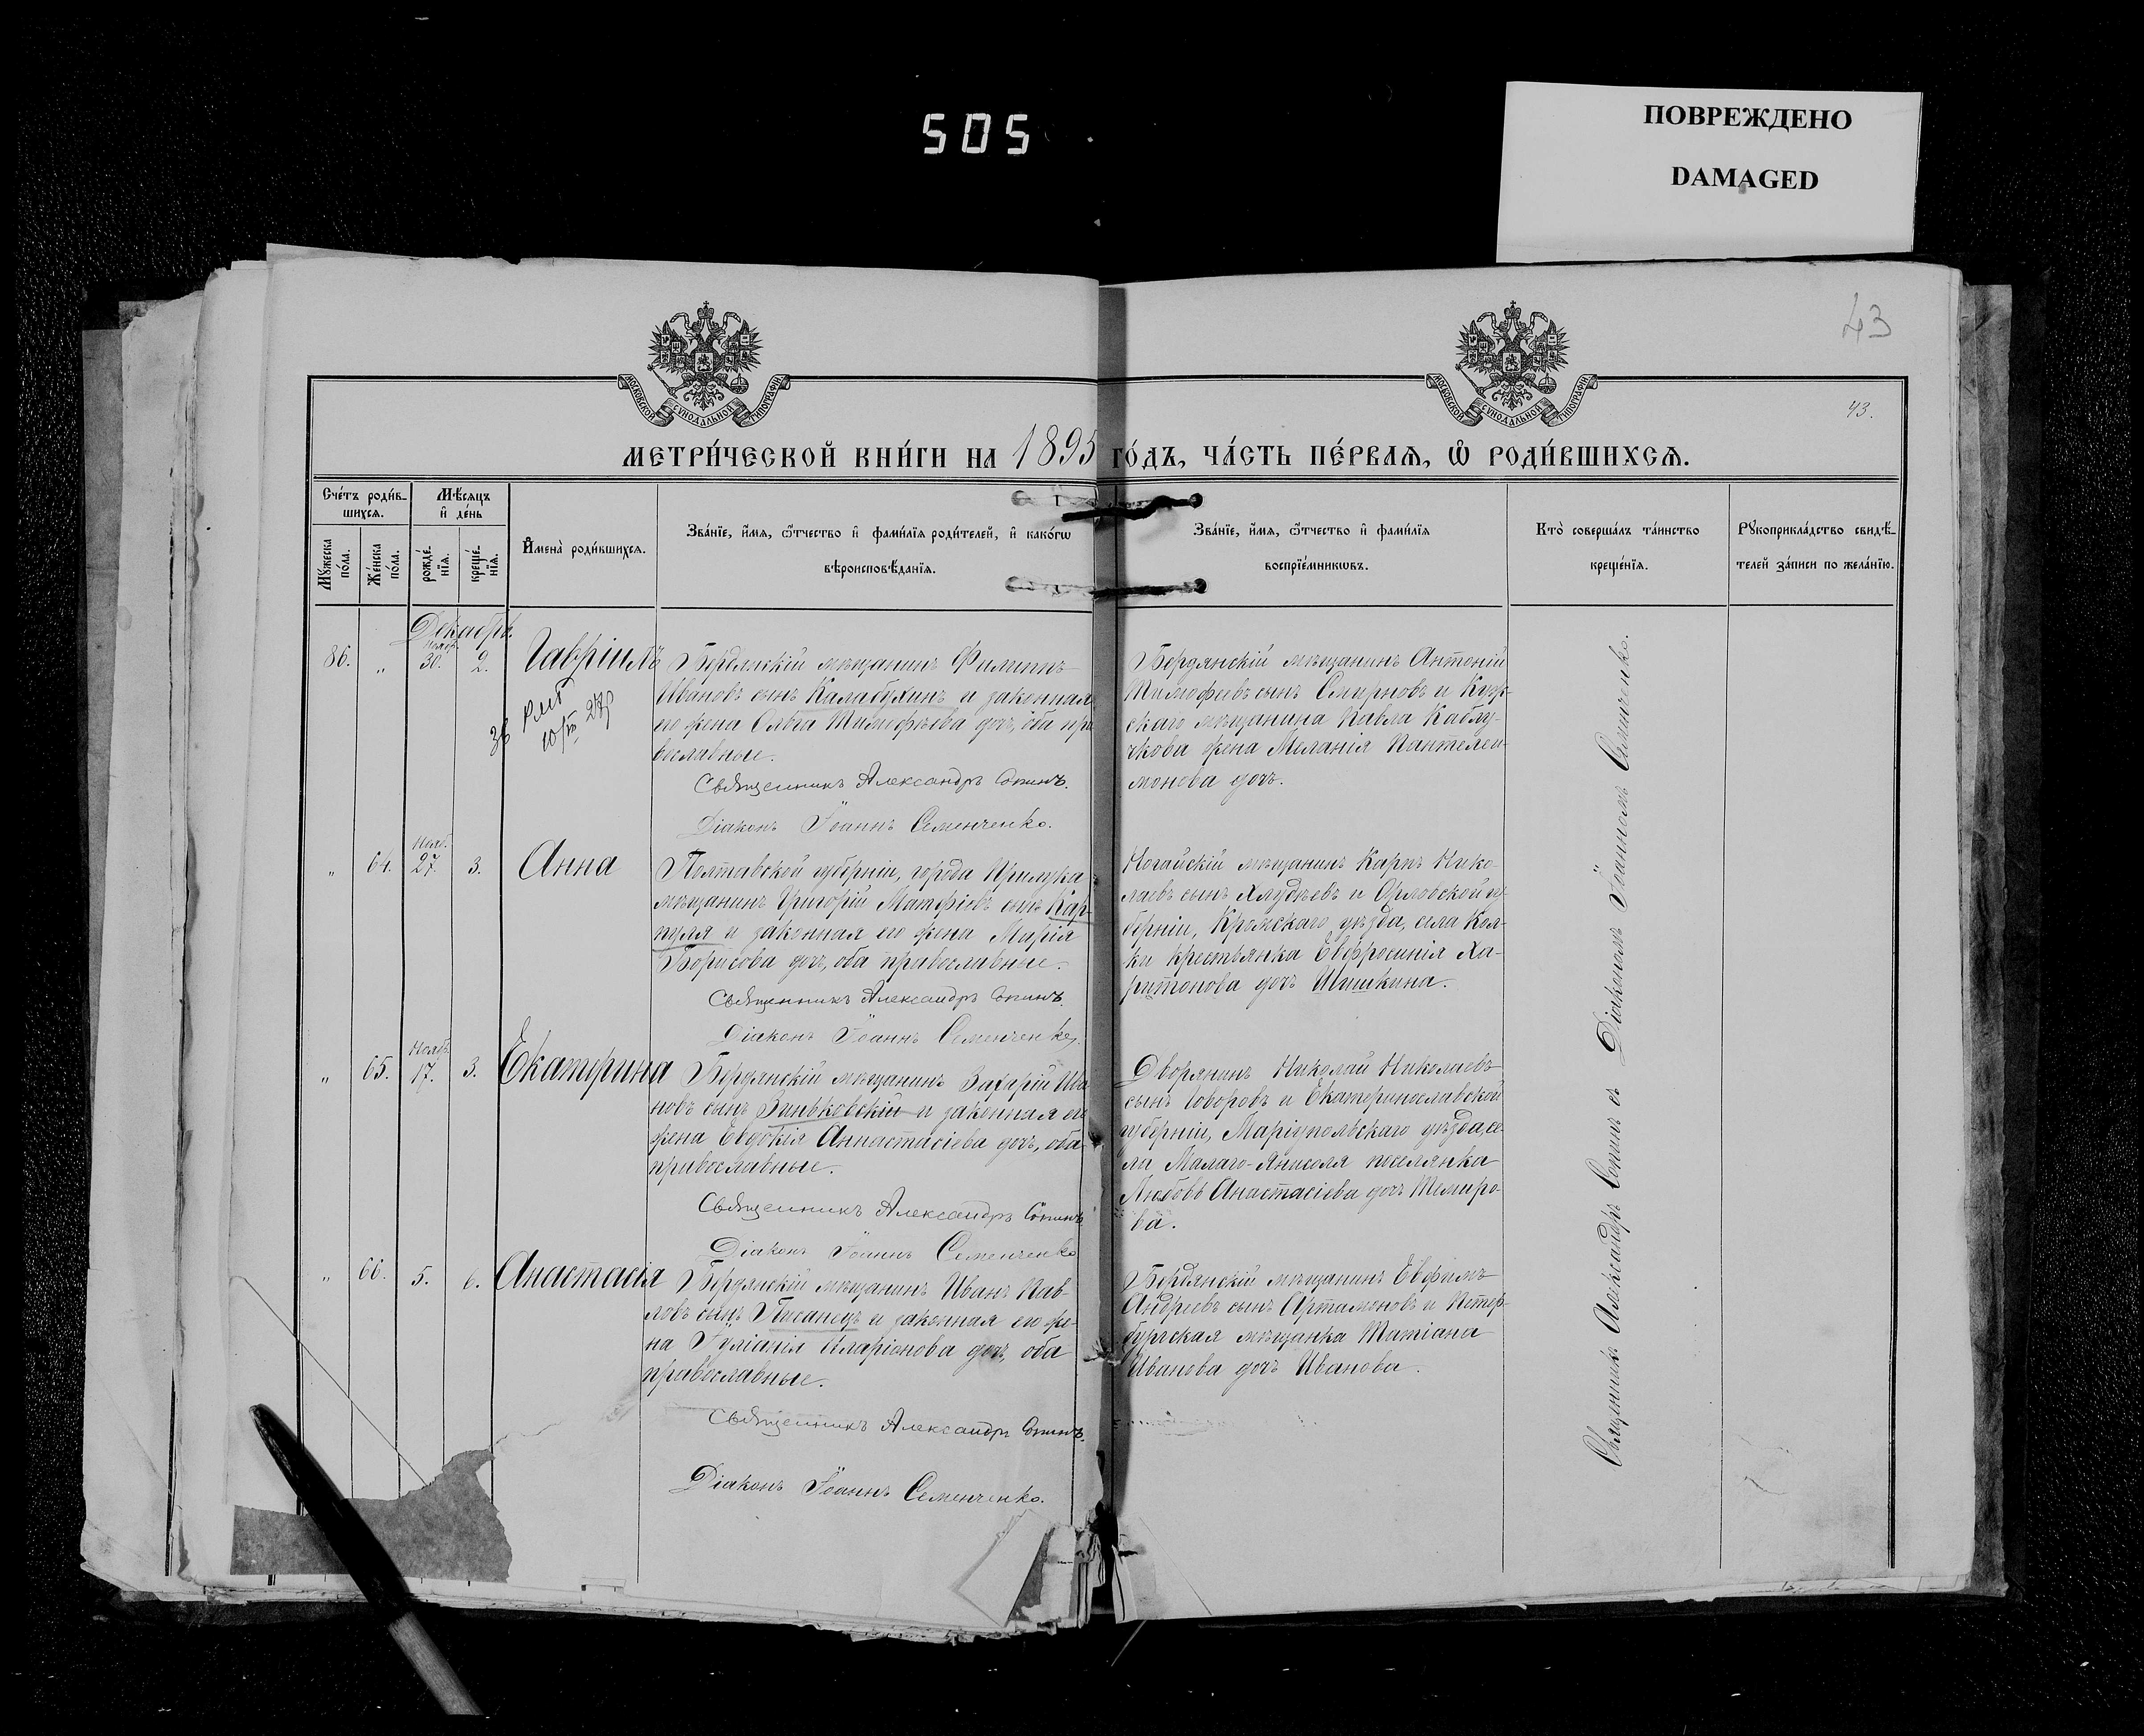 505
ПОВРЕЖДЕНО
DAMAGED
43
43.
МОСКОВСКОЙ СѴНОДАЛЬНОЙ ТИПОГРАФІИ
МОСКОВСКОЙ СѴНОДАЛЬНОЙ ТИПОГРАФІИ
МЕТРИ́ЧЕСКОЙ КНИ́ГИ НА 1895 ГО́ДЪ, ЧА́СТЬ ПЕ́РВАѦ, Ѡ҆ РОДИ́ВШИХСѦ.
Сче́тъ роди́в-
шихсѧ.
Мꙋ́жеска по́ла.
Же́нска по́ла.
Мѣ́сѧцъ
и҆ де́нь
рожде́-
нїѧ.
креще́-
нїѧ.
И҆мена̀ роди́вшихсѧ.
Зва́нїе, и҆́мѧ, ѻ҆́тчество и҆ фами́лїѧ роди́телей, и҆ како́гѡ
вѣроисповѣ́данїѧ.
Зва́нїе, и҆́мѧ, ѻ҆́тчество и҆ фами́лїѧ
воспрїе́мникѡвъ.
Кто̀ соверша́лъ та́инство
креще́нїѧ.
Рꙋкоприкла́дство свидѣ́-
телей за́писи по жела́нїю.
Декабрь.
86. „ Нояб. 30. 2. Гавріилъ
Бердянскій мѣщанинъ Филиппъ
Ивановъ сынъ Калабухинъ и законная
его жена Ольга Тимофѣева дочь, оба пра
вославные.
Священникъ Александръ Сопинъ.
Діаконъ Іоаннъ Семенченко.
Бердянскій мѣщанинъ Антоній
Тимофеевъ сынъ Смирновъ и Кур-
скаго мѣщанина Павла Каблу-
чкова жена Меланія Пантелеи-
монова дочь.
„ 64. Нояб. 27. 3. Анна
Полтавской губерніи, города Прилука
мѣщанинъ Григорій Матфіевъ сынъ Кар-
пуля и законная его жена Марія
Борисова дочь, оба православные.
Священникъ Александръ Сопинъ.
Діаконъ Іоаннъ Семенченко.
Ногайскій мѣщанинъ Карпъ Нико-
лаевъ сынъ Хлудѣевъ и Орловской гу-
берніи, Кромскаго уѣзда, села Кол-
ки крестьянка Евфросинія Ха-
ритонова дочь Шишкина.
„ 65. Нояб. 17. 3. Екатерина
Бердянскій мѣщанинъ Захарій Ива
новъ сынъ Зиньковскій и законная его
жена Евдокія Анастасіева дочь, оба
православные.
Священникъ Александръ Сопинъ
Діаконъ Іоаннъ Семенченко
Дворянинъ Николай Николаевъ
сынъ Говоровъ и Екатеринославской
губерніи, Маріупольскаго уѣзда, се-
ла Малаго-Янисоля поселянка
Любовь Анастасіева дочь Темиро-
ва.
„ 66. 5. 6. Анастасія
Бердянскій мѣщанинъ Иванъ Пав-
ловъ сынъ Писанецъ и законная его же-
на Іуліанія Иларіонова дочь, оба
православные.
Священникъ Александръ Сопинъ.
Діаконъ Іоаннъ Семенченко.
Бердянскій мѣщанинъ Евфимъ
Андреевъ сынъ Артамоновъ и Петер-
бургская мѣщанка Татіана
Иванова дочь Иванова.
Священникъ Александръ Сопинъ съ Діакономъ Іоанномъ Семенченко.